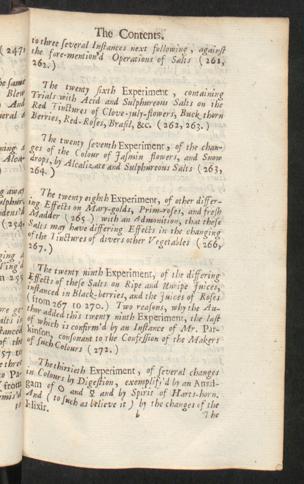 The Contents.
to three several Instances next following, against
the fore-mention'd Operations of Salts (261,
262.)
The twenty sixth Experiment, containing
Trials with Acid and Sulphureous Salts on the
Red Tinctures of Clove-july-flowers, Buckthorn
Berries, Red-Roses, Brasil, &c. (262, 263.)
The twenty seventh Experiment, of the chan-
ges of the Colour of Jasmin flowers, and Snow
drops, by Alcalizate and Sulphureous Salts (263,
264.)
The twenty eighth Experiment, of other differ-
ing Effects on Mary-golds, Prim-roses, and fresh
Madder (265.) with an Admonition, that these
Salts may have differing Effects in the changing
of the Tinctures of divers other Vegetables (266,
267.)
The twenty ninth Experiment, of the differing
Effects of these Salts on Ripe and Unripe Juices,
instanced in Black-berries, and the juices of Roses
(from 267 to 270.) Two reasons, why the Au-
thor added this twenty ninth Experiment, the last
of which is confirm'd by an Instance of Mr. Par-
kinson, consonant to the Confession of the Makers
of such Colours (272.)
The thirtieth Experiment, of several changes
in Colours by Digestion, exemplifi'd by an Amal-
gam of ☉ and ☿ and by Spirit of Harts-horn.
And (to such as believe it) by the changes of the
Elixis.
b
The